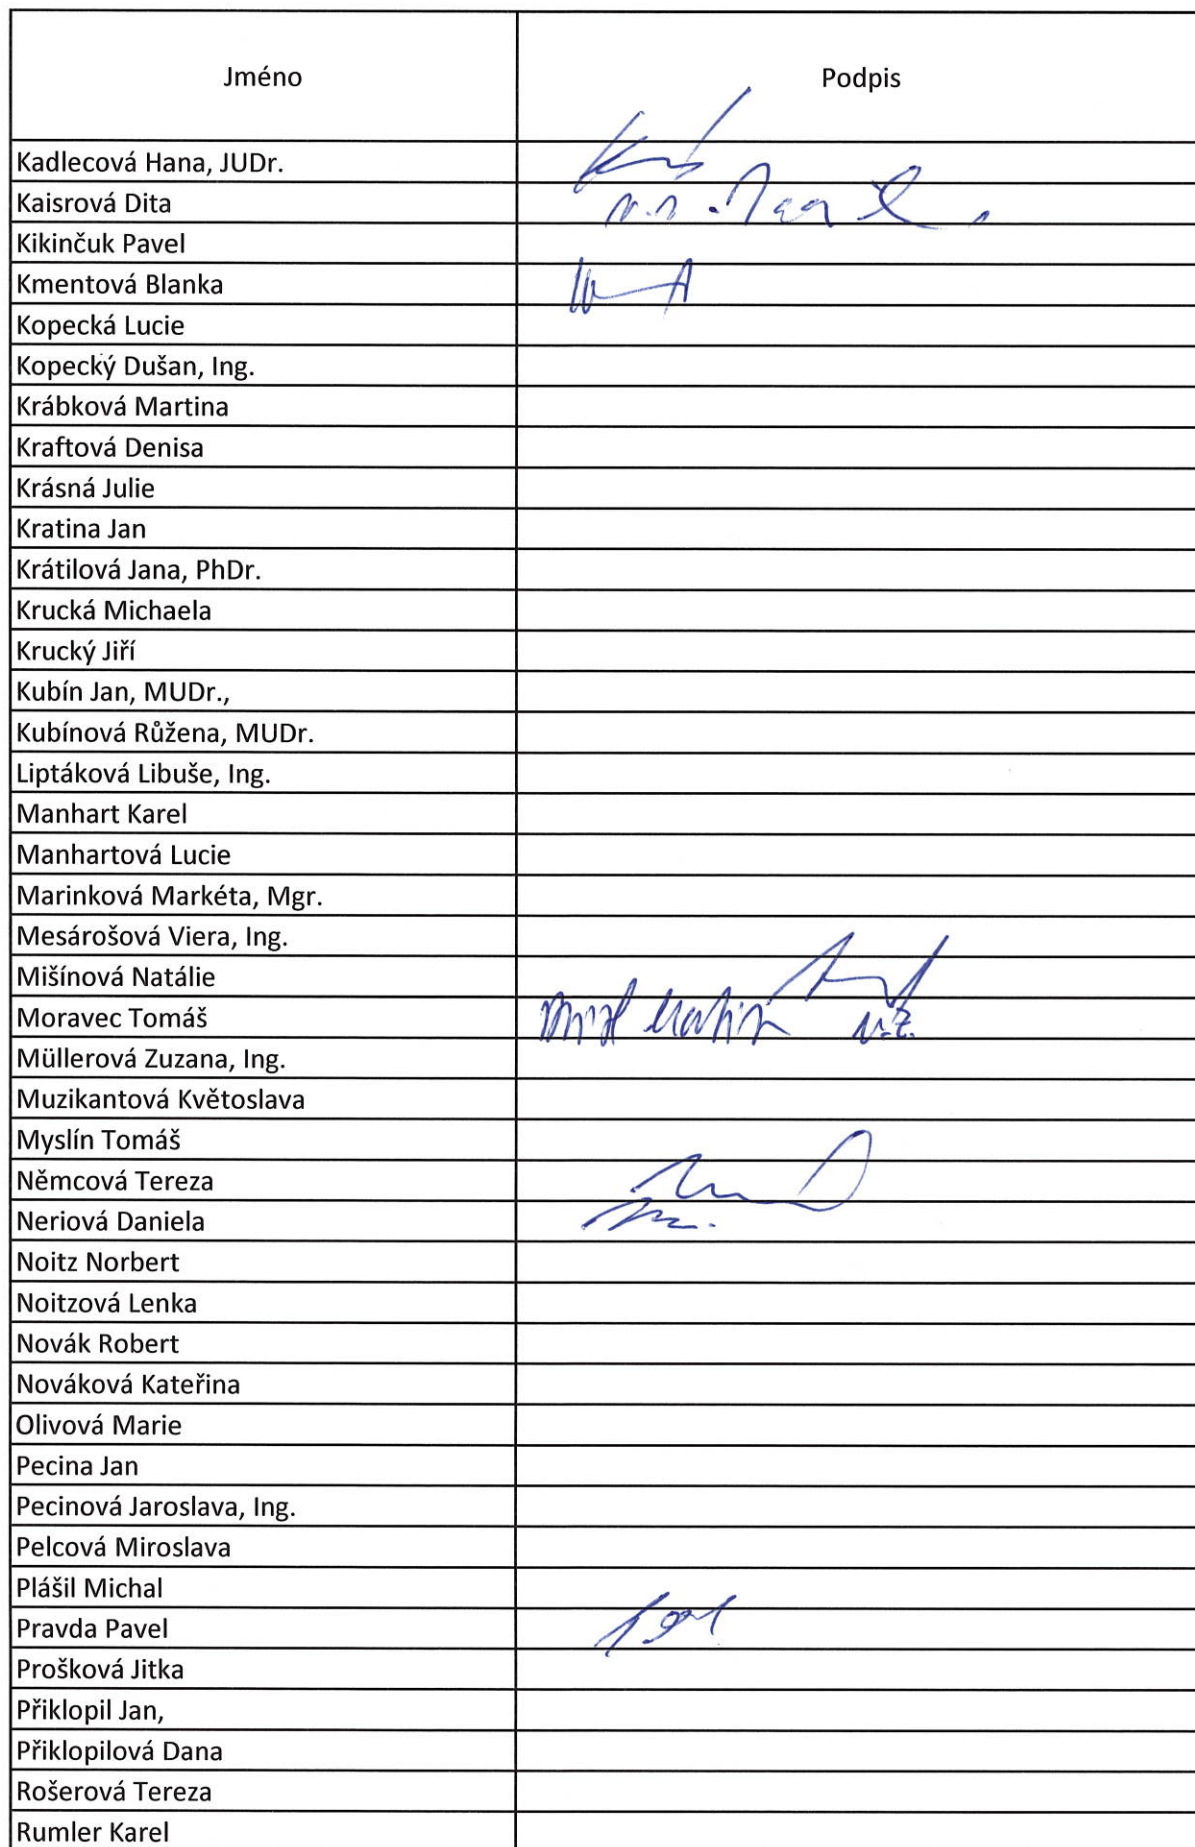 Jméno Podpis
Kadlecová Hana, JUDr.
Kaisrová Dita
Kikinčuk Pavel
Kmentová Blanka
Kopecká Lucie
Kopecký Dušan, Ing.
Krábková Martina
Kraftová Denisa
Krásná Julie
Kratina Jan
Krátilová Jana, PhDr.
Krucká Michaela
Krucký Jiří
Kubín Jan, MUDr.,
Kubínová Růžena, MUDr.
Liptáková Libuše, Ing.
Manhart Karel
Manhartová Lucie
Marinková Markéta, Mgr.
Mesárošová Viera, Ing.
Mišínová Natálie
Moravec Tomáš
Müllerová Zuzana, Ing.
Muzikantová Květoslava
Myslín Tomáš
Němcová Tereza
Neriová Daniela
Noitz Norbert
Noitzová Lenka
Novák Robert
Nováková Kateřina
Olivová Marie
Pecina Jan
Pecinová Jaroslava, Ing.
Pelcová Miroslava
Plášil Michal
Pravda Pavel
Prošková Jitka
Přiklopil Jan,
Přiklopilová Dana
Rošerová Tereza
Rumler Karel